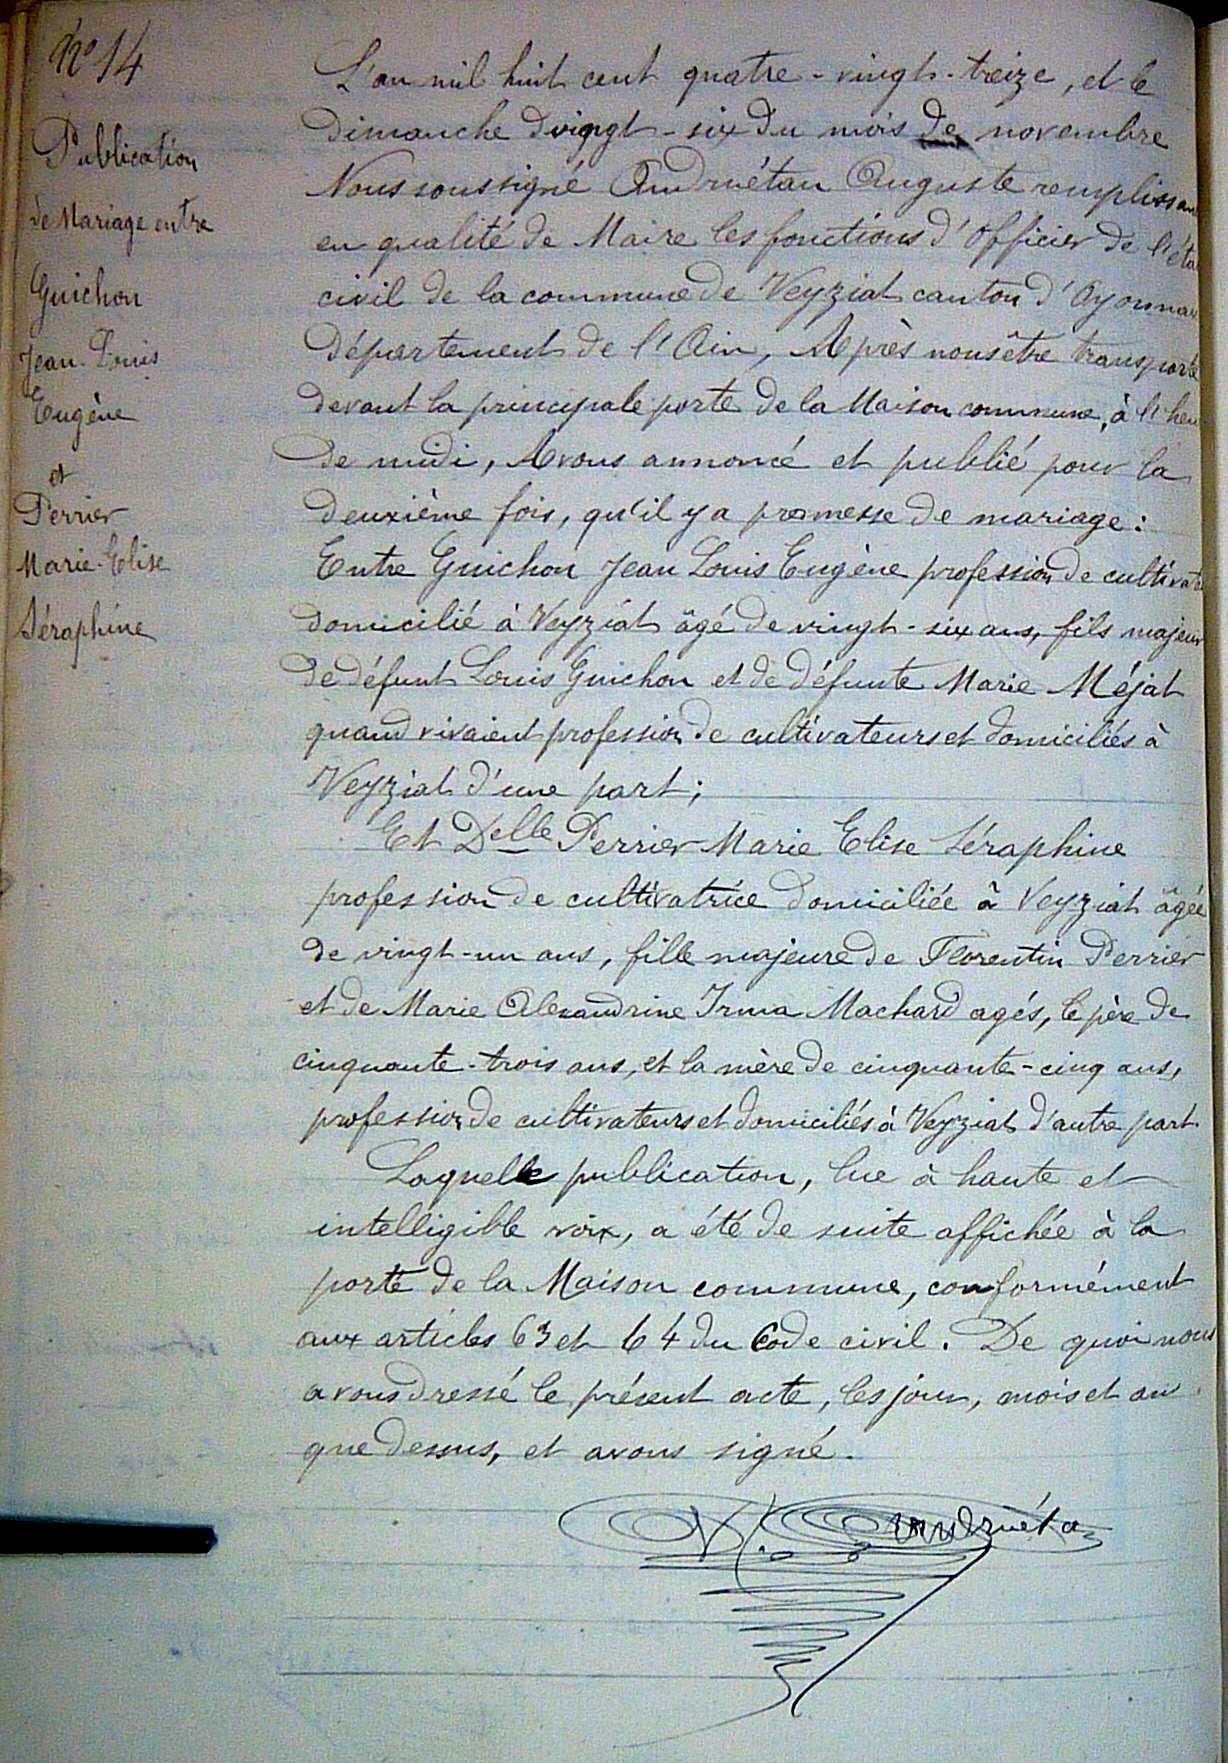 N° 14
Publication
de Mariage entre
Guichon
Jean-Louis
Eugène
et
Perrier
Marie-Elise
Séraphine
L'an mil huit cent quatre-vingt-treize, et le
dimanche vingt-six du mois de novembre
Nous soussigné Andruétan Auguste remplissan
en qualité de Maire les fonctions d'Officier de l'éta
civil de la commune de Veyziat canton d'Oyonnax
département de l'Ain, Après nous être transporté
devant la principale porte de la Maison commune, à l'heu
de midi, Avons annoncé et publié pour la
deuxième fois, qu'il y a promesse de mariage :
Entre Guichon Jean Louis Eugène profession de cultivate
domicilié à Veyziat âgé de vingt-six ans, fils majeur
de défunt Louis Guichon et de défunte Marie Méjat
quand vivaient profession de cultivateurs et domiciliés à
Veyziat d'une part ;
Et Delle Perrier Marie Elise Séraphine
profession de cultivatrice domiciliée à Veyziat âgée
de vingt-un ans, fille majeure de Florentin Perrier
et de Marie Alexandrine Irma Machard agés, le père de
cinquante-trois ans, et la mère de cinquante-cinq ans,
profession de cultivateurs et domiciliés à Veyziat d'autre part.
Laquelle publication, lue à haute et
intelligible voix, a été de suite affichée à la
porte de la Maison commune, conformément
aux articles 63 et 64 du Code civil. De quoi nous
avons dressé le présent acte, les jour, mois et an
que dessus, et avons signé.
Andruétan